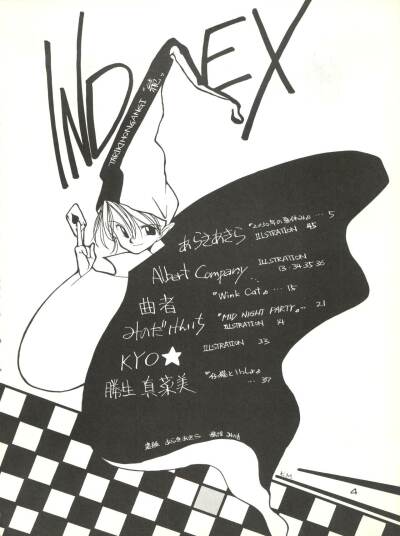 INDEX
あらきあきら
ILLUSTRATION 45
… 5
Albert Company
ILLUSTRATION
13・34・35・36
曲者
"Wink Cat" … 15
みのだけんいち
"MID NIGHT PARTY" … 21
ILLUSTRATION 14
KYO★
ILLUSTRATION 33
勝生真菜美
… 37
表紙 あらきあきら
4